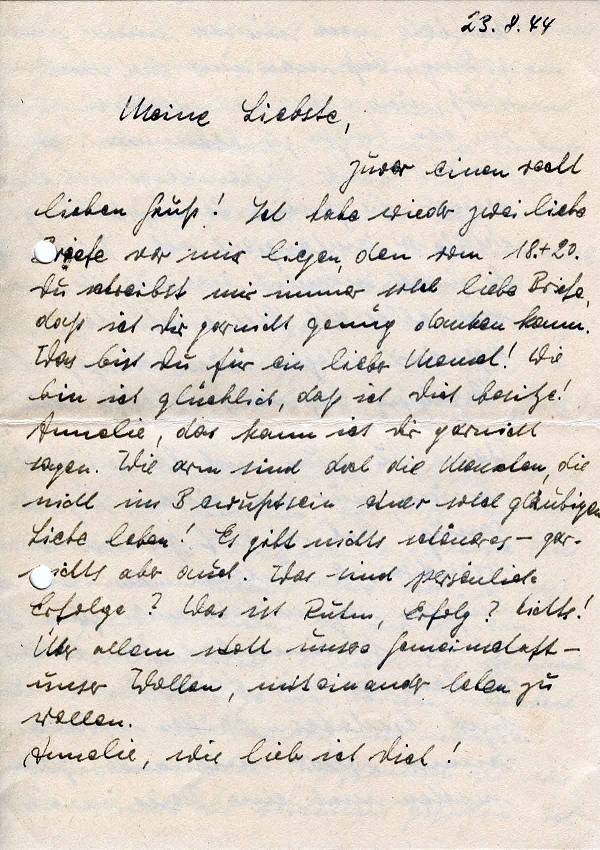 23.8.44
Meine Liebste,
zuvor einen recht
lieben Gruß! Ich habe wieder zwei liebe
Briefe vor mir liegen, den vom 18.+20.
Du schreibst mir immer solch liebe Briefe,
daß ich Dir garnicht genug danken kann.
Was bist Du für ein lieber Mensch! Wie
bin ich glücklich, daß ich Dich besitze!
Annelie, das kann ich Dir garnicht
sagen. Wie arm sind doch die Menschen, die
nicht im Bewußtsein einer solch gläubigen
Liebe leben! Es gibt nichts schöneres – gar-
nichts aber auch. Was sind persönliche
Erfolge? Was ist Ruhm, Erfolg? Nichts!
Über allem steht unsere Gemeinschaft –
unser Wollen, miteinander leben zu
wollen.
Annelie, wie lieb ich Dich!